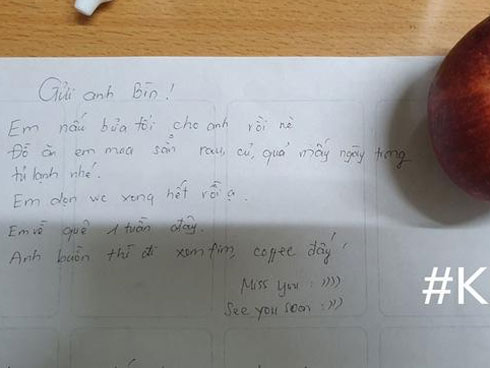 Gửi anh Bin!
Em nấu bữa tối cho anh rồi nè
Đồ ăn em mua sẵn rau, củ, quả mấy ngày trong
tủ lạnh nhé.
Em dọn wc xong hết rồi ạ.
Em về quê 1 tuần đây.
Anh buồn thì đi xem fim, coffee đấy!
Miss you :))))
See you soon :)))
#K